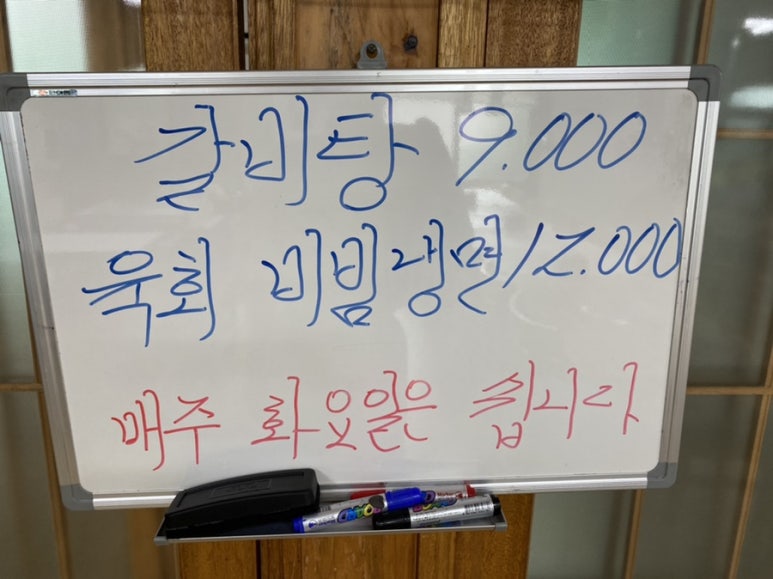 갈비탕 9.000
육회 비빔냉면 12.000
매주 화요일은 쉽니다